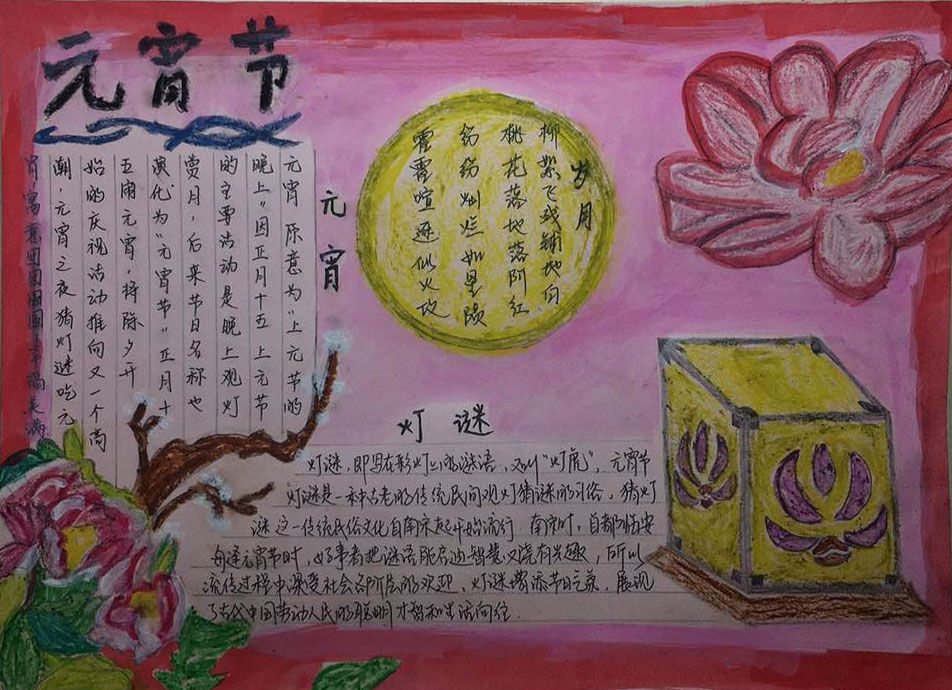 元宵节
元宵
元宵原意为"上元节的
晚上"因正月十五上元节
的主要活动是晚上观灯
赏月，后来节日名称也
演化为"元宵节"正月十
五闹元宵，将除夕开
始的庆祝活动推向又一个高
潮，元宵之夜猜灯谜吃元
宵寓意团团圆圆幸福美满
岁月
柳絮飞线铺地白
桃花落地落阶红
纷纷灿烂如星陨
霍霍喧逐似火攻
灯谜
灯谜，即写在彩灯上的谜语，又叫"灯虎"，元宵节
灯谜是一种古老的传统民间观灯猜谜的习俗，猜灯
谜这一传统民俗文化自南宋起开始流行 南宋时，首都临安
每逢元宵节时，好事者把谜语 启迪智慧又饶有兴趣，所以
流传过程中深受社会各阶层的欢迎，灯谜增添节日气氛，展现
了古代中国劳动人民的聪明才智和生活向往.